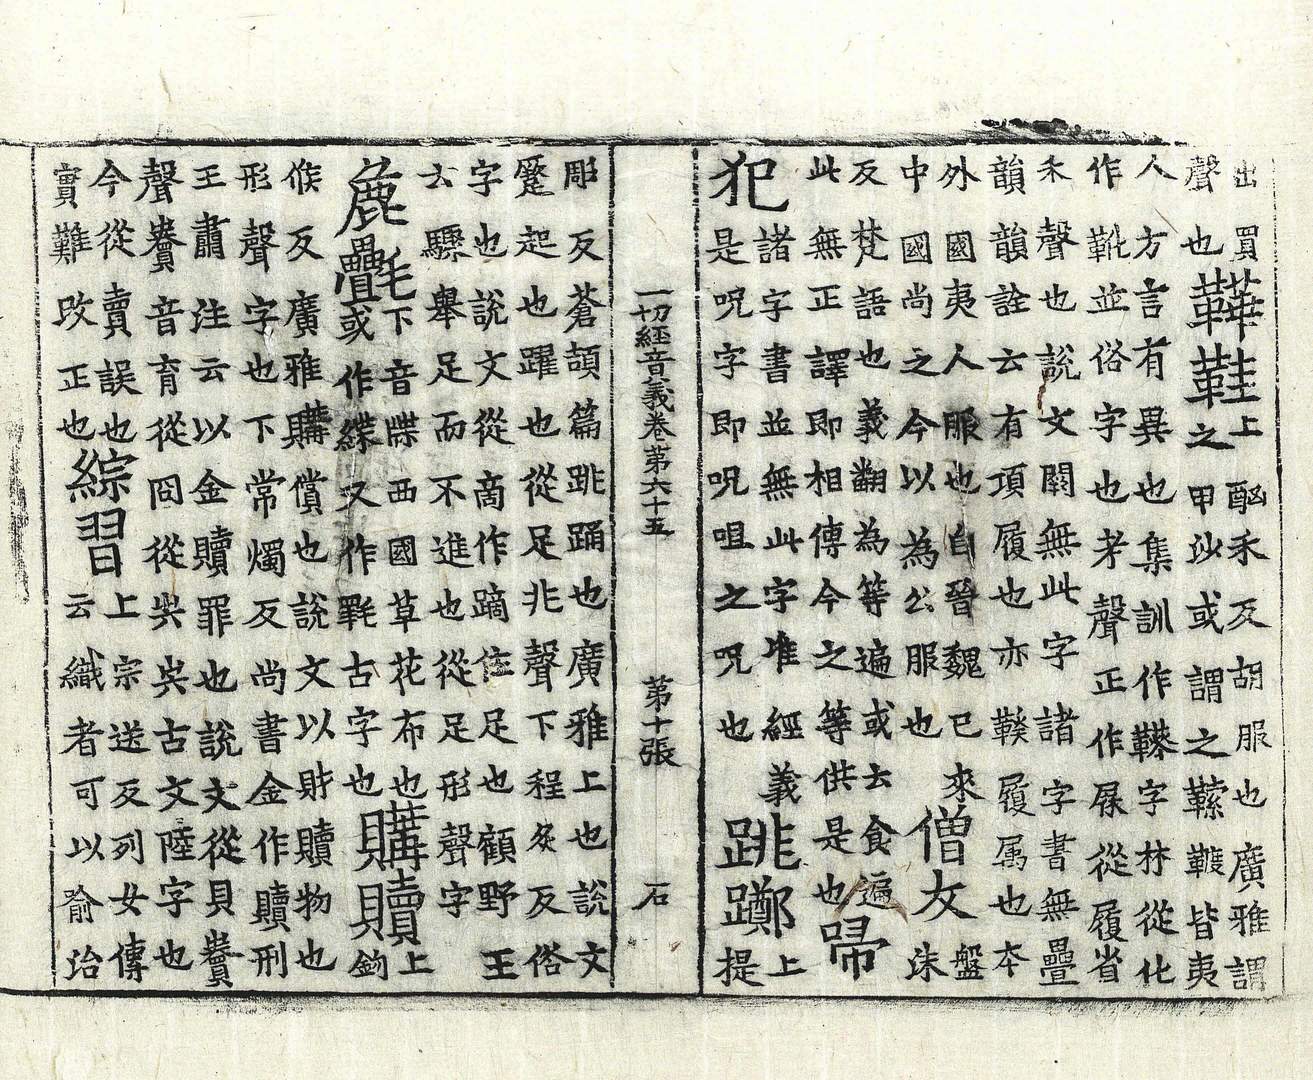 出買
聲也
鞾鞋
上䤈禾反胡服也廣雅謂
之甲沙或謂之鞾皆夷
人方言有異也集訓作字林從化
作靴並俗字也考聲正作從履省
禾聲也說文闕無此字諸字書無疊
韻韻詮云有項履也亦鞵屨属也本
外國夷人服也自晉魏已來
中國尚之今以為公服也
僧
盤
沬
反梵語也義翻為等遍或去食遍
此無正譯即相傳今之等供是也
啼
犯
諸字書並無此字准經義
是呪字即呪咀之呪也
跳躑
上
提
一切經音義卷第六十五 第十張 石
彫反蒼頡篇跳踊也廣雅上也說文
躄起也躍也從足兆聲下程炙反俗
字也說文從啇作蹢住足也顧野王
云驟舉足而不進也從足形聲字
麁㲲
下音牒西國草花布也
或作緤又作古字也
購贖
上
鉤
候反廣雅購償也說文以財贖物也
形聲字也下常燭反尚書金作贖刑
王肅注云以金贖罪也說文從貝𧶠
聲𧶠音育從囧從𡴆𡴆古文陸字也
今從賣誤也
實難改正也
綜習
上宗送反列女傳
云織者可以喻治